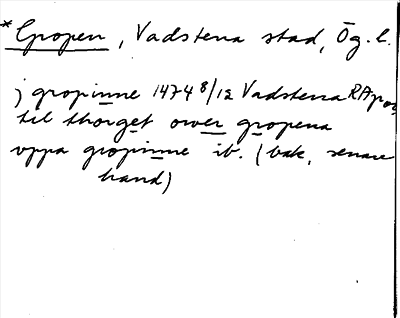 *Gropen, Vadstena stad, Ög. l.
j gropinne 1474 8/12 Vadstena RAp or.
til thorget ower gropena
uppa gropinne ib. (bak, senare
hand)